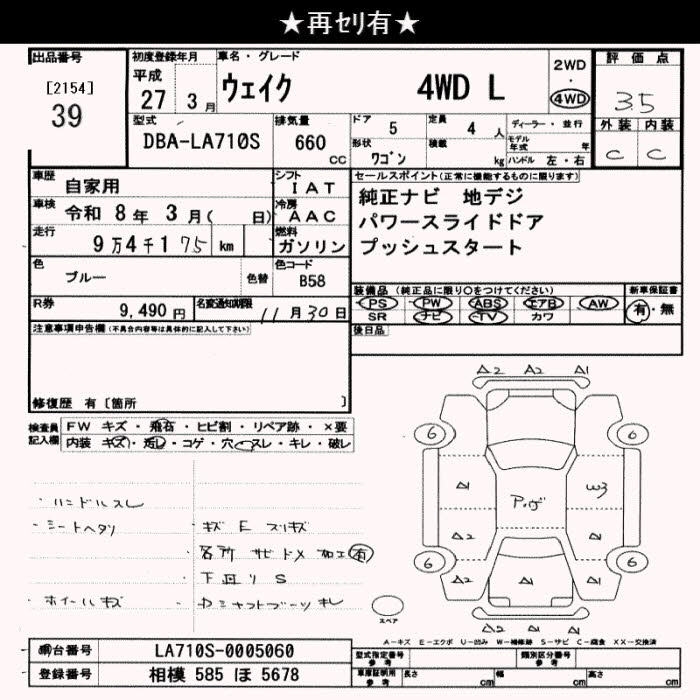 ★再セリ有★
出品番号
[2154]
39
初度登録年月
平成
27年3月
車名・グレード
ウェイク 4WD L
2WD
・
4WD
評価点
3.5
外装 内装
C C
型式
DBA-LA710S
排気量
660
CC
ドア 5
定員 4人
形状 ワゴン
積載 kg
ディーラー・並行
モデル年式 年
ハンドル 左・右
車歴 自家用
シフト IAT
車検 令和8年3月( 日)
冷房 AAC
走行 9万4千175 km
燃料 ガソリン
色 ブルー 色替
色コード B58
R券 9,490円
名変通知期限 11月30日
セールスポイント(正常に機能するものに限ります)
純正ナビ 地デジ
パワースライドドア
プッシュスタート
装備品(純正品に限り○をつけてください)
PS PW ABS エアB AW
SR ナビ TV カワ
新車保証書
有・無
後日品
注意事項申告欄(不具合内容等は具体的に記入して下さい)
修復歴 有〔箇所 〕
検査員記入欄
FW キズ・飛石・ヒビ割・リペア跡・×要
内装 キズ・汚レ・コゲ・穴・スレ・キレ・破レ
・ハンドルスレ
・シートヘタリ
・ホイールキズ
・キズ E スリキズ
・各所 サビ ドメ 加工 有
・下回リ S
A2 A2 A1
6 6
A1 W3
A2 A1
6 6
A2 A1 A1
A2 A2 A1
スペア
A−キズ E−エクボ U−凹み W−補修跡 S−サビ C−腐食 XX−交換済
車台番号 LA710S-0005060
登録番号 相模 585 ほ 5678
型式指定番号
参考
類別区分番号
参考
車庫証明用
参考
長さ cm 幅 cm 高さ cm